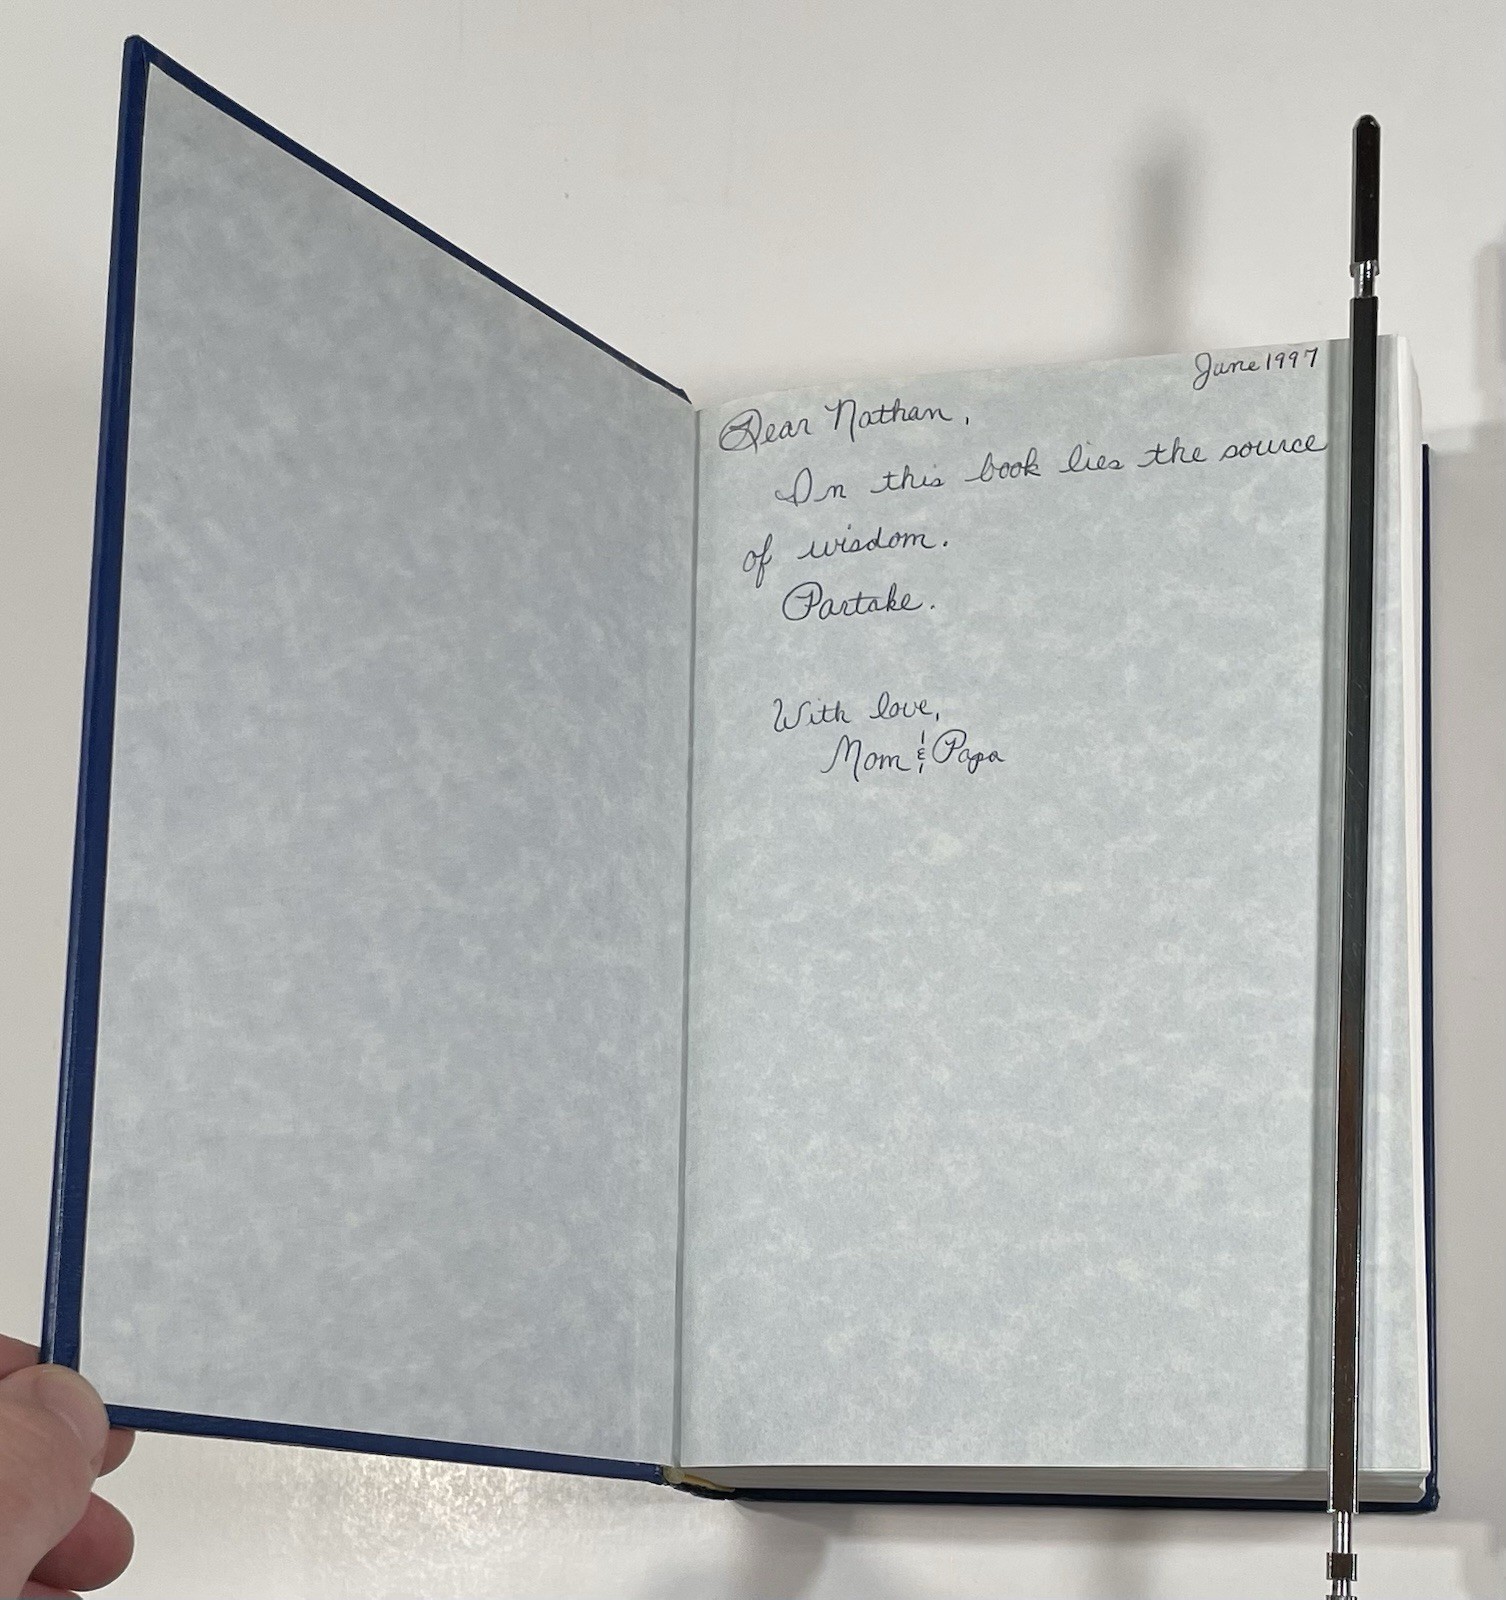 June 1997
Dear Nathan,
In this book lies the source
of wisdom.
Partake.
With love,
Mom & Papa